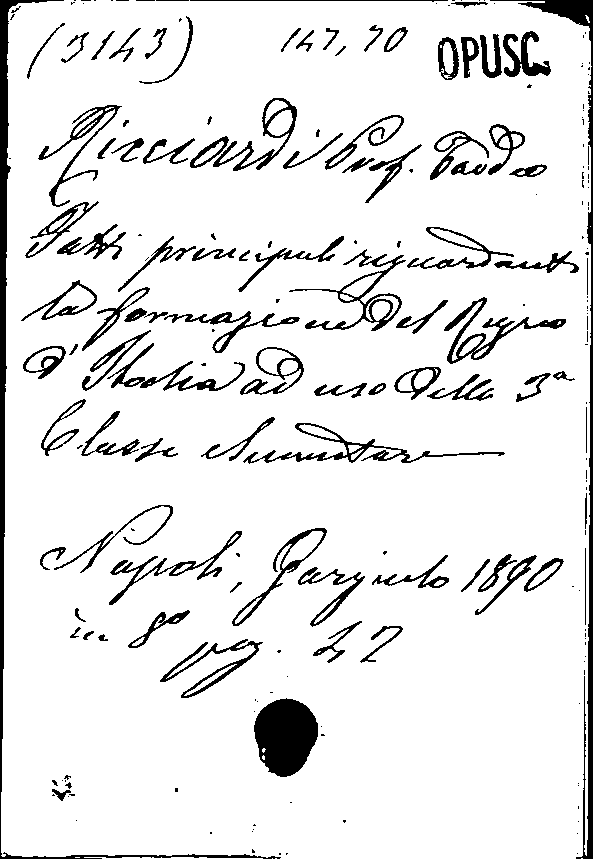 (3143) 147,70 OPUSC.
Ricciardi Prof. Taddeo
Fatti principali riguardanti
la formazione del Regno
d'Italia ad uso della 3ª
Classe elementare
Napoli, Gargiulo 1890
in 8º pag. 47